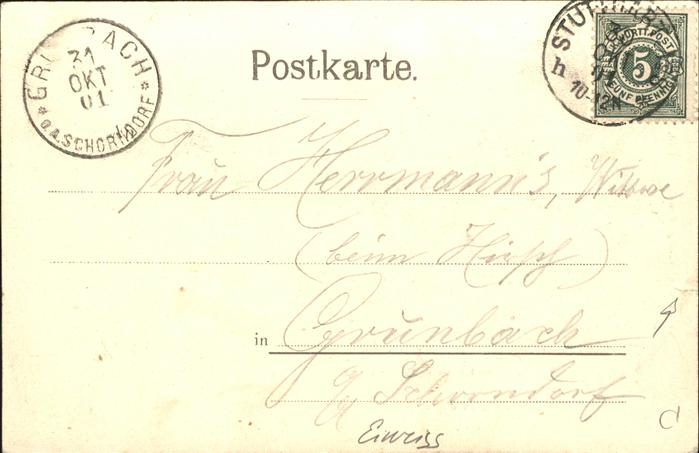 GRUNBACH
31
OKT
01
O.A. SCHORNDORF
Postkarte.
STUTTGART
h
10-12N
K. WÜRTT. POST
5
FÜNF PFENNIG
Frau Herrmann's, Wittwe
(beim Hirsch)
in Grunbach
Schorndorf
Eiweiss